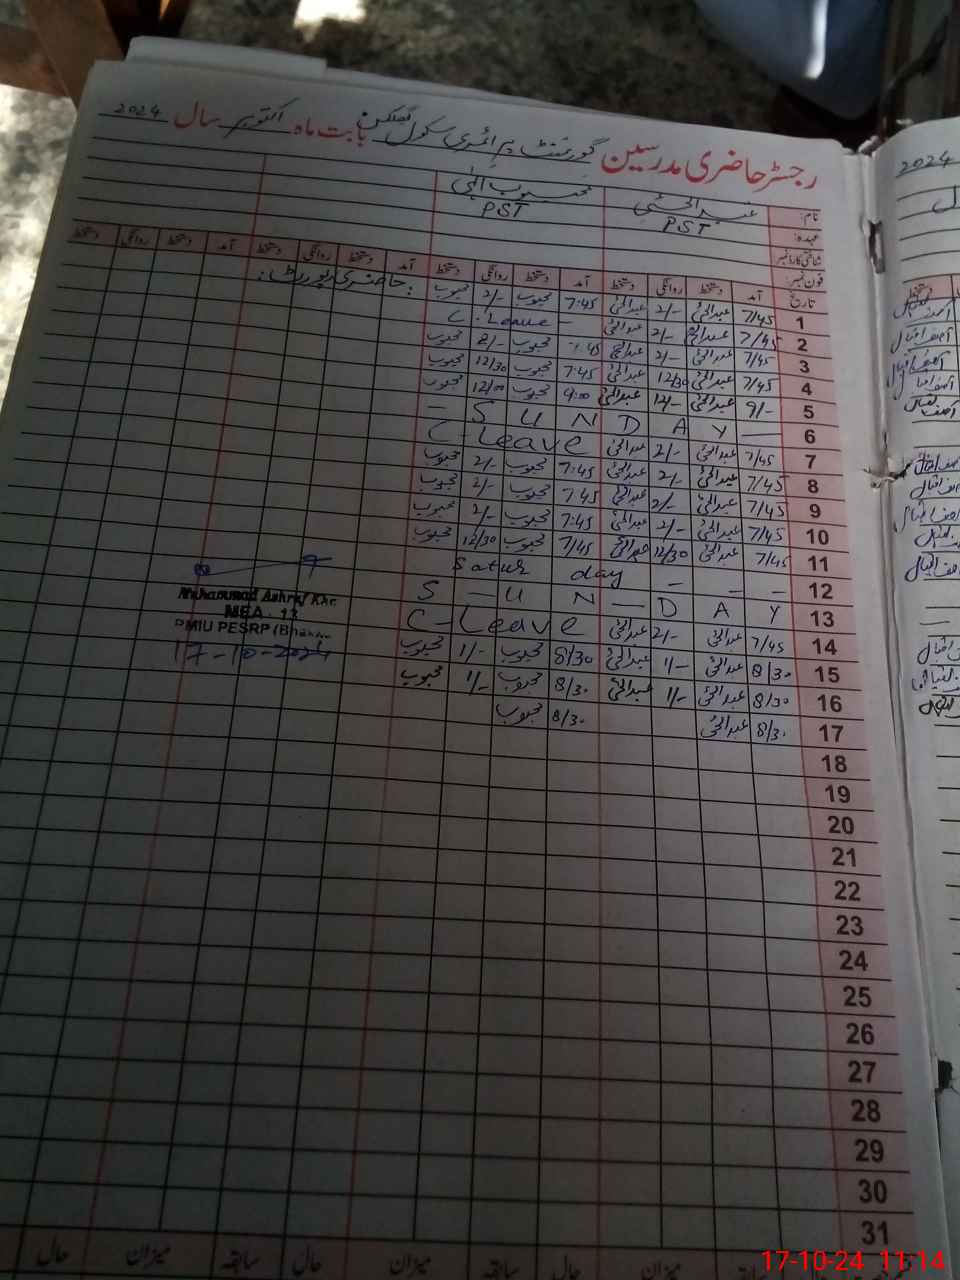 رجسٹر حاضری مدرسین گورنمنٹ پرائمری سکول بابت ماہ اکتوبر سال 2024
نام: عبدالحئی محبوب الٰہی
عہدہ: PST PST
شناختی کارڈ نمبر
فون نمبر:
تاریخ آمد دستخط روانگی دستخط آمد دستخط روانگی دستخط آمد دستخط روانگی دستخط آمد دستخط روانگی دستخط
1 7/45 عبدالحئی 2/- عبدالحئی 7:45 محبوب 2/- محبوب
2 7/45 عبدالحئی 2/- عبدالحئی - C. Leave
3 7/45 عبدالحئی 2/- عبدالحئی 7:45 محبوب 2/- محبوب
4 7/45 عبدالحئی 12/30 عبدالحئی 7:45 محبوب 12/30 محبوب
5 9/- عبدالحئی 12/- عبدالحئی 9:00 محبوب 12/00 محبوب
6 - S U N D A Y -
7 7/45 عبدالحئی 2/- عبدالحئی C-Leave
8 7/45 عبدالحئی 2/- عبدالحئی 7:45 محبوب 2/- محبوب
9 7/45 عبدالحئی 2/- عبدالحئی 7:45 محبوب 2/- محبوب
10 7/45 عبدالحئی 2/- عبدالحئی 7:45 محبوب 2/- محبوب
11 7/45 عبدالحئی 12/30 عبدالحئی 7/45 محبوب 12/30 محبوب
12 Satur day - - -
13 S - U N - D A Y
14 7/45 عبدالحئی 2/- عبدالحئی C-Leave
15 8/30 عبدالحئی 1/- عبدالحئی 8/30 محبوب 1/- محبوب
16 8/30 عبدالحئی 1/- عبدالحئی 8/30 محبوب 1/- محبوب
17 8/30 عبدالحئی 8/30 محبوب
18
19
20
21
22
23
24
25
26
27
28
29
30
31
حاضری رپورٹ:
Muhammad Ashraf
MEA - 12
PMIU PESRP
17-10-2024
میزان حال سابقہ میزان حال سابقہ میزان حال
2024
17-10-24 11:14